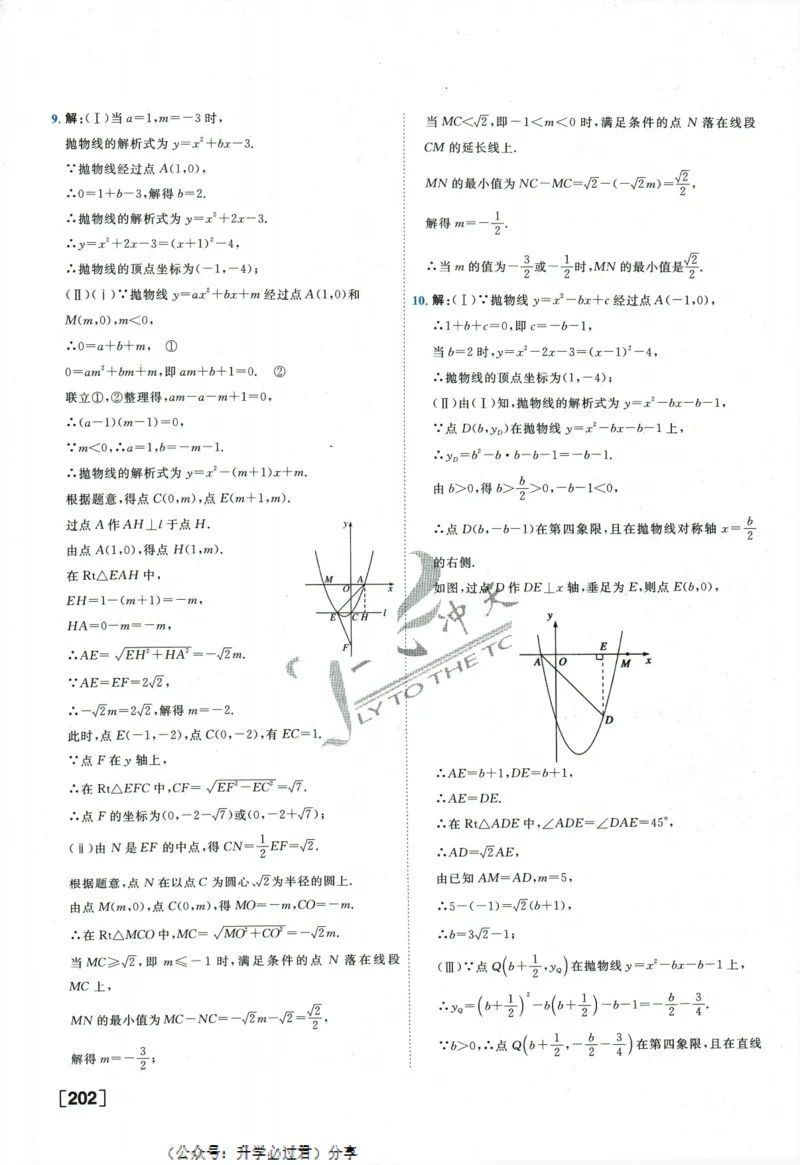 9. 解:(Ⅰ)当 a=1,m=-3 时,
抛物线的解析式为 y=x²+bx-3.
∵抛物线经过点 A(1,0),
∴0=1+b-3,解得 b=2.
∴抛物线的解析式为 y=x²+2x-3.
∴y=x²+2x-3=(x+1)²-4,
∴抛物线的顶点坐标为(-1,-4);
(Ⅱ)(ⅰ)∵抛物线 y=ax²+bx+m 经过点 A(1,0)和
M(m,0),m<0,
∴0=a+b+m, ①
0=am²+bm+m,即 am+b+1=0. ②
联立①,②整理得,am-a-m+1=0,
∴(a-1)(m-1)=0,
∵m<0,∴a=1,b=-m-1.
∴抛物线的解析式为 y=x²-(m+1)x+m.
根据题意,得点 C(0,m),点 E(m+1,m).
过点 A 作 AH⊥l 于点 H.
由点 A(1,0),得点 H(1,m).
在 Rt△EAH 中,
EH=1-(m+1)=-m,
HA=0-m=-m,
∴AE=√(EH²+HA²)=-√2m.
∵AE=EF=2√2,
∴-√2m=2√2,解得 m=-2.
此时,点 E(-1,-2),点 C(0,-2),有 EC=1.
∵点 F 在 y 轴上,
∴在 Rt△EFC 中,CF=√(EF²-EC²)=√7.
∴点 F 的坐标为(0,-2-√7)或(0,-2+√7);
(ⅱ)由 N 是 EF 的中点,得 CN=1/2EF=√2.
根据题意,点 N 在以点 C 为圆心、√2为半径的圆上.
由点 M(m,0),点 C(0,m),得 MO=-m,CO=-m.
∴在 Rt△MCO 中,MC=√(MO²+CO²)=-√2m.
当 MC≥√2,即 m≤-1 时,满足条件的点 N 落在线段
MC 上,
MN 的最小值为 MC-NC=-√2m-√2=√2/2,
解得 m=-3/2;
y
M
O
A
x
E
C
H
l
F
[202]
当 MC<√2,即-1<m<0 时,满足条件的点 N 落在线段
CM 的延长线上.
MN 的最小值为 NC-MC=√2-(-√2m)=√2/2,
解得 m=-1/2.
∴当 m 的值为-3/2或-1/2时,MN 的最小值是√2/2.
10. 解:(Ⅰ)∵抛物线 y=x²-bx+c 经过点 A(-1,0),
∴1+b+c=0,即 c=-b-1,
当 b=2 时,y=x²-2x-3=(x-1)²-4,
∴抛物线的顶点坐标为(1,-4);
(Ⅱ)由(Ⅰ)知,抛物线的解析式为 y=x²-bx-b-1,
∵点 D(b,y_D)在抛物线 y=x²-bx-b-1 上,
∴y_D=b²-b·b-b-1=-b-1.
由 b>0,得 b>b/2>0,-b-1<0,
∴点 D(b,-b-1)在第四象限,且在抛物线对称轴 x=b/2
的右侧.
如图,过点 D 作 DE⊥x 轴,垂足为 E,则点 E(b,0),
y
E
A
O
M
x
D
∴AE=b+1,DE=b+1,
∴AE=DE.
∴在 Rt△ADE 中,∠ADE=∠DAE=45°,
∴AD=√2AE,
由已知 AM=AD,m=5,
∴5-(-1)=√2(b+1),
∴b=3√2-1;
(Ⅲ)∵点 Q(b+1/2,y_Q)在抛物线 y=x²-bx-b-1 上,
∴y_Q=(b+1/2)²-b(b+1/2)-b-1=-b/2-3/4.
∵b>0,∴点 Q(b+1/2,-b/2-3/4)在第四象限,且在直线
冲天
LY TO THE TO
(公众号:升学必过君)分享